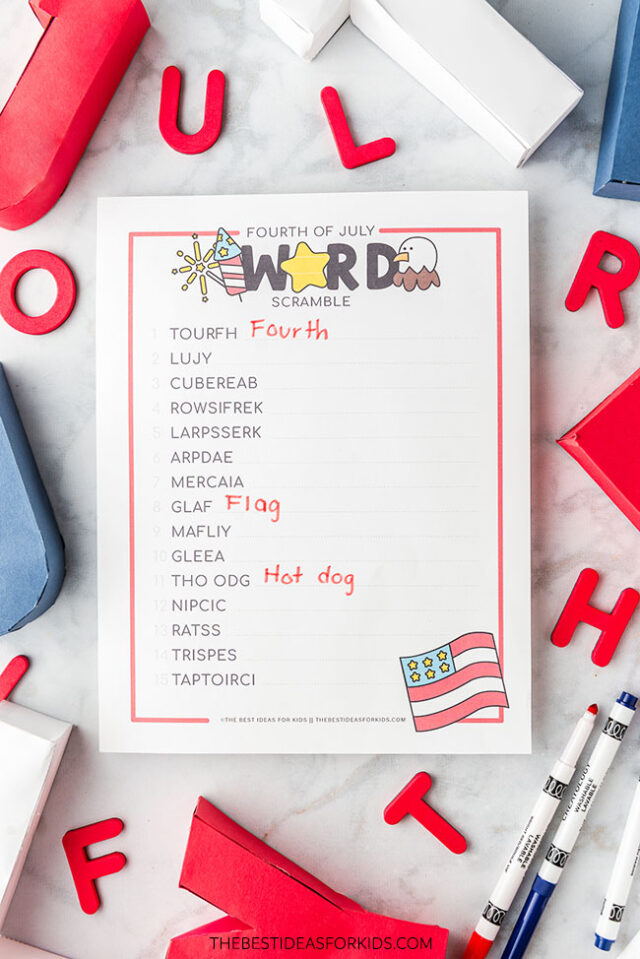 U L
O
R
FOURTH OF JULY
WORD
SCRAMBLE
1 TOURFH Fourth
2 LUJY
3 CUBEREAB
4 ROWSIFREK
5 LARPSSERK
6 ARPDAE
7 MERCAIA
8 GLAF Flag
9 MAFLIY
10 GLEEA
11 THO ODG Hot dog
12 NIPCIC
13 RATSS
14 TRISPES
15 TAPTOIRCI
©THE BEST IDEAS FOR KIDS || THEBESTIDEASFORKIDS.COM
H
F
T
CREATOLOGY
WASHABLE
LAVABLE
WASHABLE
LAVABLE
THEBESTIDEASFORKIDS.COM